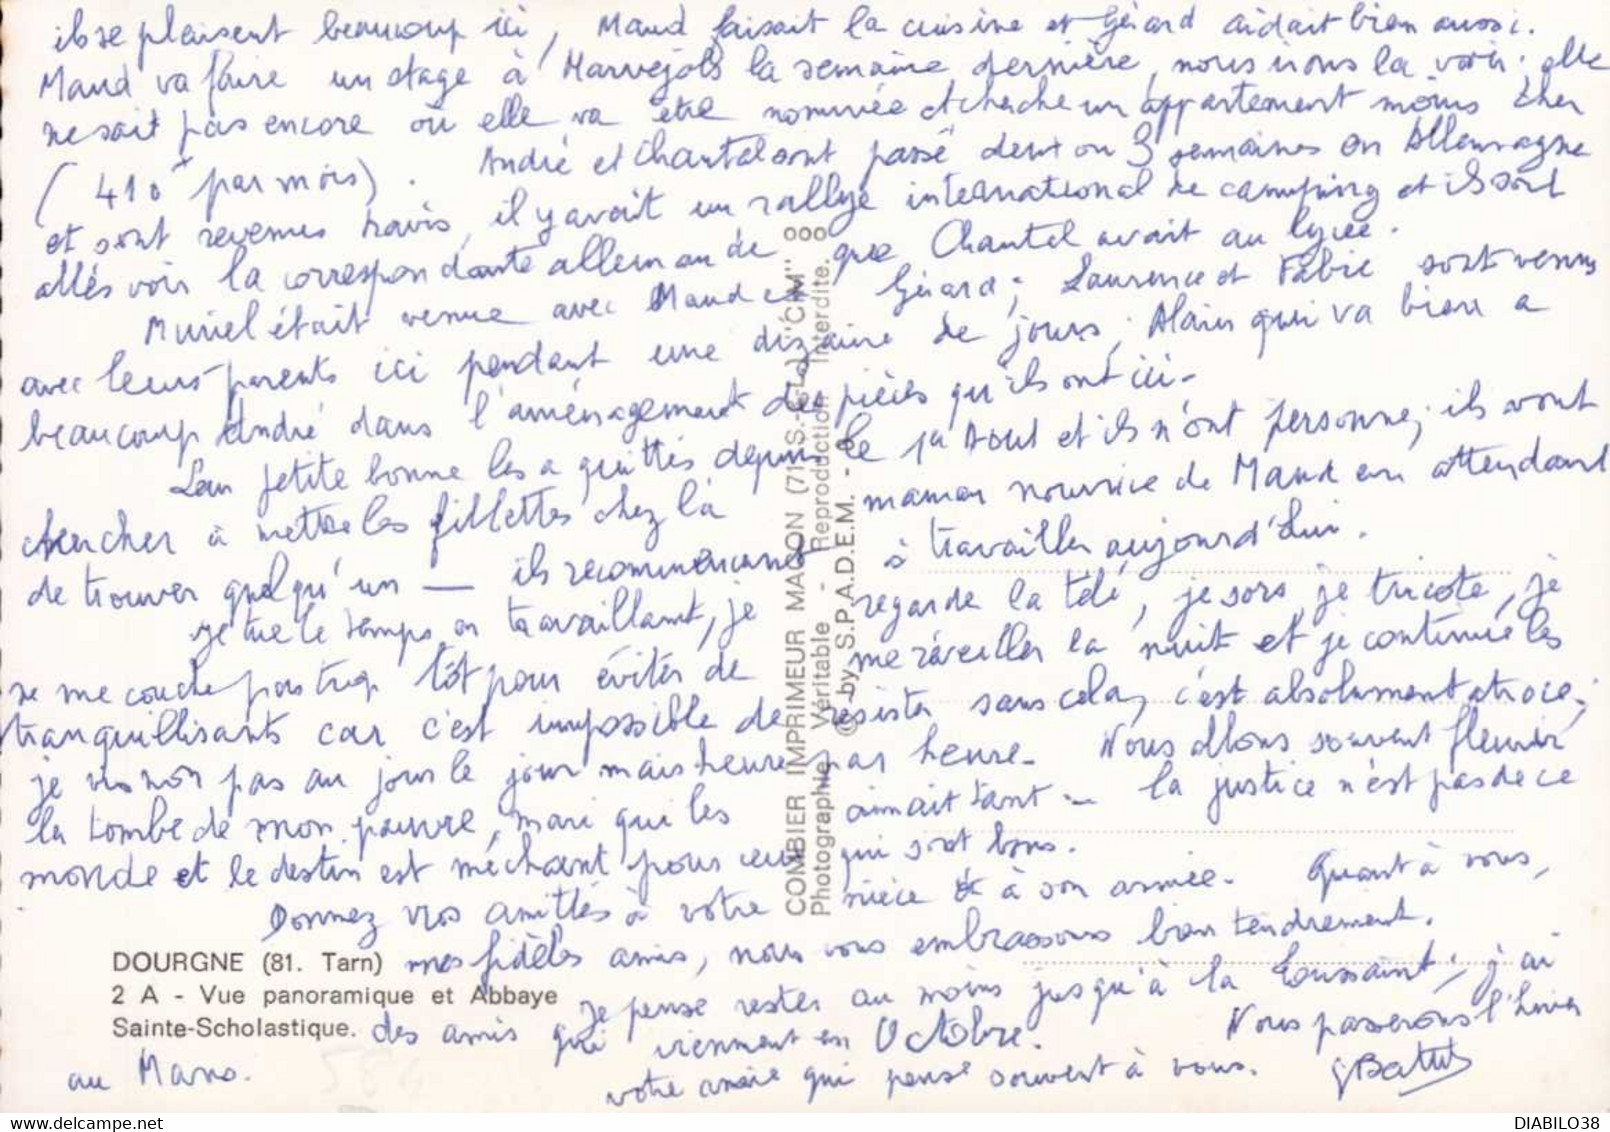 ils se plaisent beaucoup ici, Maud faisait la cuisine et Gérard aidait bien aussi.
Maud va faire un stage à Marvejols la semaine dernière, nous irons la voir ; elle
ne sait pas encore où elle va être nommée et cherche un appartement moins cher
(410 par mois). André et Chantal sont passé deux ou 3 semaines en Allemagne
et sont revenus ravis, il y avait un rallye international de camping et ils sont
allés voir la correspondante allemande que Chantal avait au lycée.
Muriel était venue avec Maud et Gérard ; Laurence et Fabie sont venus
avec leurs parents ici pendant une dizaine de jours ; Alain qui va bien a
beaucoup André dans l'aménagement des pièces qu'ils ont ici -
Leur petite bonne les a quittés depuis le 1er Aout et ils n'ont personne ; ils vont
chercher à mettre les fillettes chez la maman nourrice de Maud en attendant
de trouver quelqu'un — ils recommencent à travailler aujourd'hui.
Je tue le temps en travaillant, je regarde la télé, je sors, je tricote, je
ne me couche pas trop tôt pour éviter de me réveiller la nuit et je continue les
tranquillisants car c'est impossible de résister sans cela, c'est absolument atroce ;
je vis non pas au jour le jour mais heure par heure. Nous allons souvent fleurir
la tombe de mon pauvre mari qui les aimait tant - la justice n'est pas de ce
monde et le destin est méchant pour ceux qui sont bons.
Donnez vos amitiés à votre nièce et à son année. Quant à vous,
mes fidèles amis, nous vous embrassons bien tendrement.
Je pense rester au moins jusqu'à la Toussaint ; j'ai
des amis qui viennent en Octobre. Nous passerons l'hiver
au Mans.
votre amie qui pense souvent à vous. GBattut
DOURGNE (81. Tarn)
2 A - Vue panoramique et Abbaye
Sainte-Scholastique.
COMBIER IMPRIMEUR MACON (71 S.-&-L.) "CIM"
Photographie Véritable - Reproduction Interdite.
© by S.P.A.D.E.M. -
DIABILO38